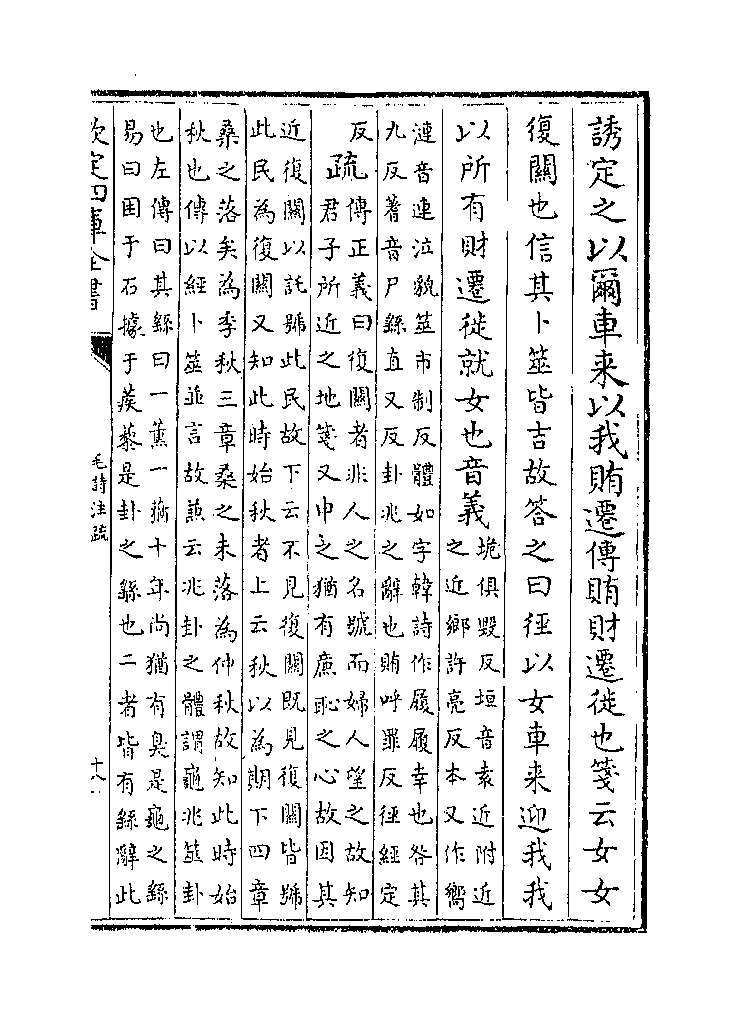 誘定之以爾車来以我賄遷傳賄財遷徙也箋云女女
復關也信其卜筮皆吉故答之曰徑以女車来迎我我
以所有財遷徙就女也音義
垝俱毀反垣音袁近附近
之近鄉許亮反本又作嚮
漣音連泣貌筮市制反體如字韓詩作履履幸也咎其
九反蓍音尸繇直又反卦兆之辭也賄呼罪反徑經定
反
疏
傳正義曰復關者非人之名號而婦人望之故知
君子所近之地箋又申之猶有亷恥之心故因其
近復關以託號此民故下云不見復關既見復關皆號
此民為復關又知此時始秋者上云秋以為期下四章
桑之落矣為季秋三章桑之未落為仲秋故知此時始
秋也傳以經卜筮並言故兼云兆卦之體謂龜兆筮卦
也左傳曰其繇曰一薰一蕕十年尚猶有臭是龜之繇
易曰困于石據于蒺藜是卦之繇也二者皆有繇辭此
欽定四庫全書
毛詩注疏